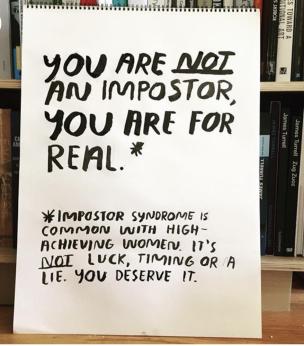 YOU ARE NOT
AN IMPOSTOR,
YOU ARE FOR
REAL.*
*IMPOSTOR SYNDROME IS
COMMON WITH HIGH-
ACHIEVING WOMEN. IT'S
NOT LUCK, TIMING OR A
LIE. YOU DESERVE IT.
James Turrell
James Turrell
JAMES TURRELL